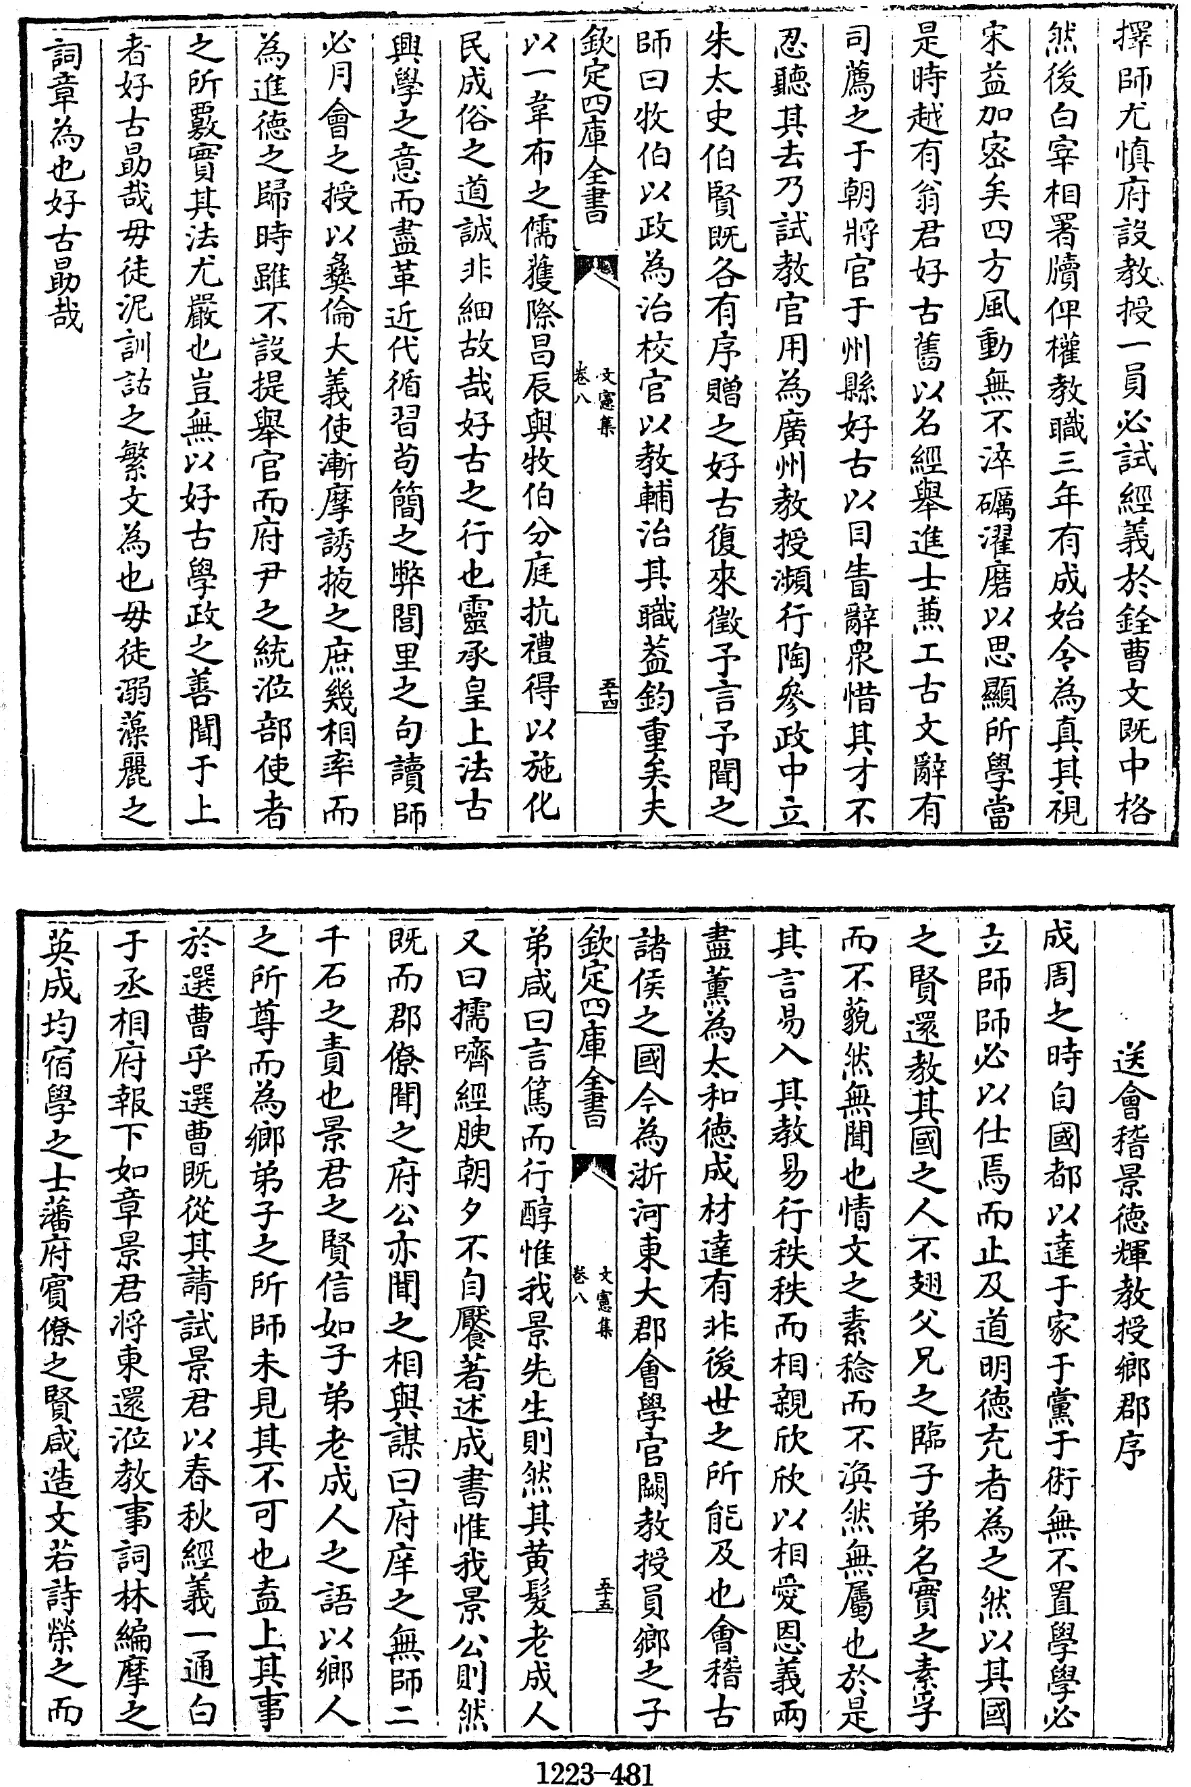 擇師尤慎府設教授一員必試經義於銓曹文既中格
然後白宰相署牘俾權教職三年有成始令為真其視
宋益加密矣四方風動無不淬礪濯磨以思顯所學當
是時越有翁君好古舊以名經舉進士兼工古文辭有
司薦之于朝將官于州縣好古以目眚辭衆惜其才不
忍聽其去乃試教官用為廣州教授瀕行陶參政中立
朱太史伯賢既各有序贈之好古復來徵予言予聞之
師曰牧伯以政為治校官以教輔治其職蓋鈞重矣夫
欽定四庫全書
文憲集
卷八
五十四
以一韋布之儒獲際昌辰與牧伯分庭抗禮得以施化
民成俗之道誠非細故哉好古之行也靈承皇上法古
興學之意而盡革近代循習苟簡之弊閭里之句讀師
必月會之授以彝倫大義使漸摩誘掖之庶幾相率而
為進德之歸時雖不設提舉官而府尹之統涖部使者
之所覈實其法尤嚴也豈無以好古學政之善聞于上
者好古勗哉毋徒泥訓詁之繁文為也毋徒溺藻麗之
詞章為也好古勗哉
送會稽景德輝教授鄉郡序
成周之時自國都以達于家于黨于術無不置學學必
立師師必以仕焉而止及道明德充者為之然以其國
之賢還教其國之人不翅父兄之臨子弟名實之素孚
而不藐然無聞也情文之素稔而不渙然無屬也於是
其言易入其教易行秩秩而相親欣欣以相愛恩義兩
盡薰為太和德成材達有非後世之所能及也會稽古
諸侯之國今為浙河東大郡會學官闕教授員鄉之子
欽定四庫全書
文憲集
卷八
五十五
弟咸曰言篤而行醇惟我景先生則然其黃髮老成人
又曰擩嚌經腴朝夕不自饜著述成書惟我景公則然
既而郡僚聞之府公亦聞之相與謀曰府庠之無師二
千石之責也景君之賢信如子弟老成人之語以鄉人
之所尊而為鄉弟子之所師未見其不可也盍上其事
於選曹乎選曹既從其請試景君以春秋經義一通白
于丞相府報下如章景君將東還涖教事詞林編摩之
英成均宿學之士藩府賓僚之賢咸造文若詩榮之而
1223-481